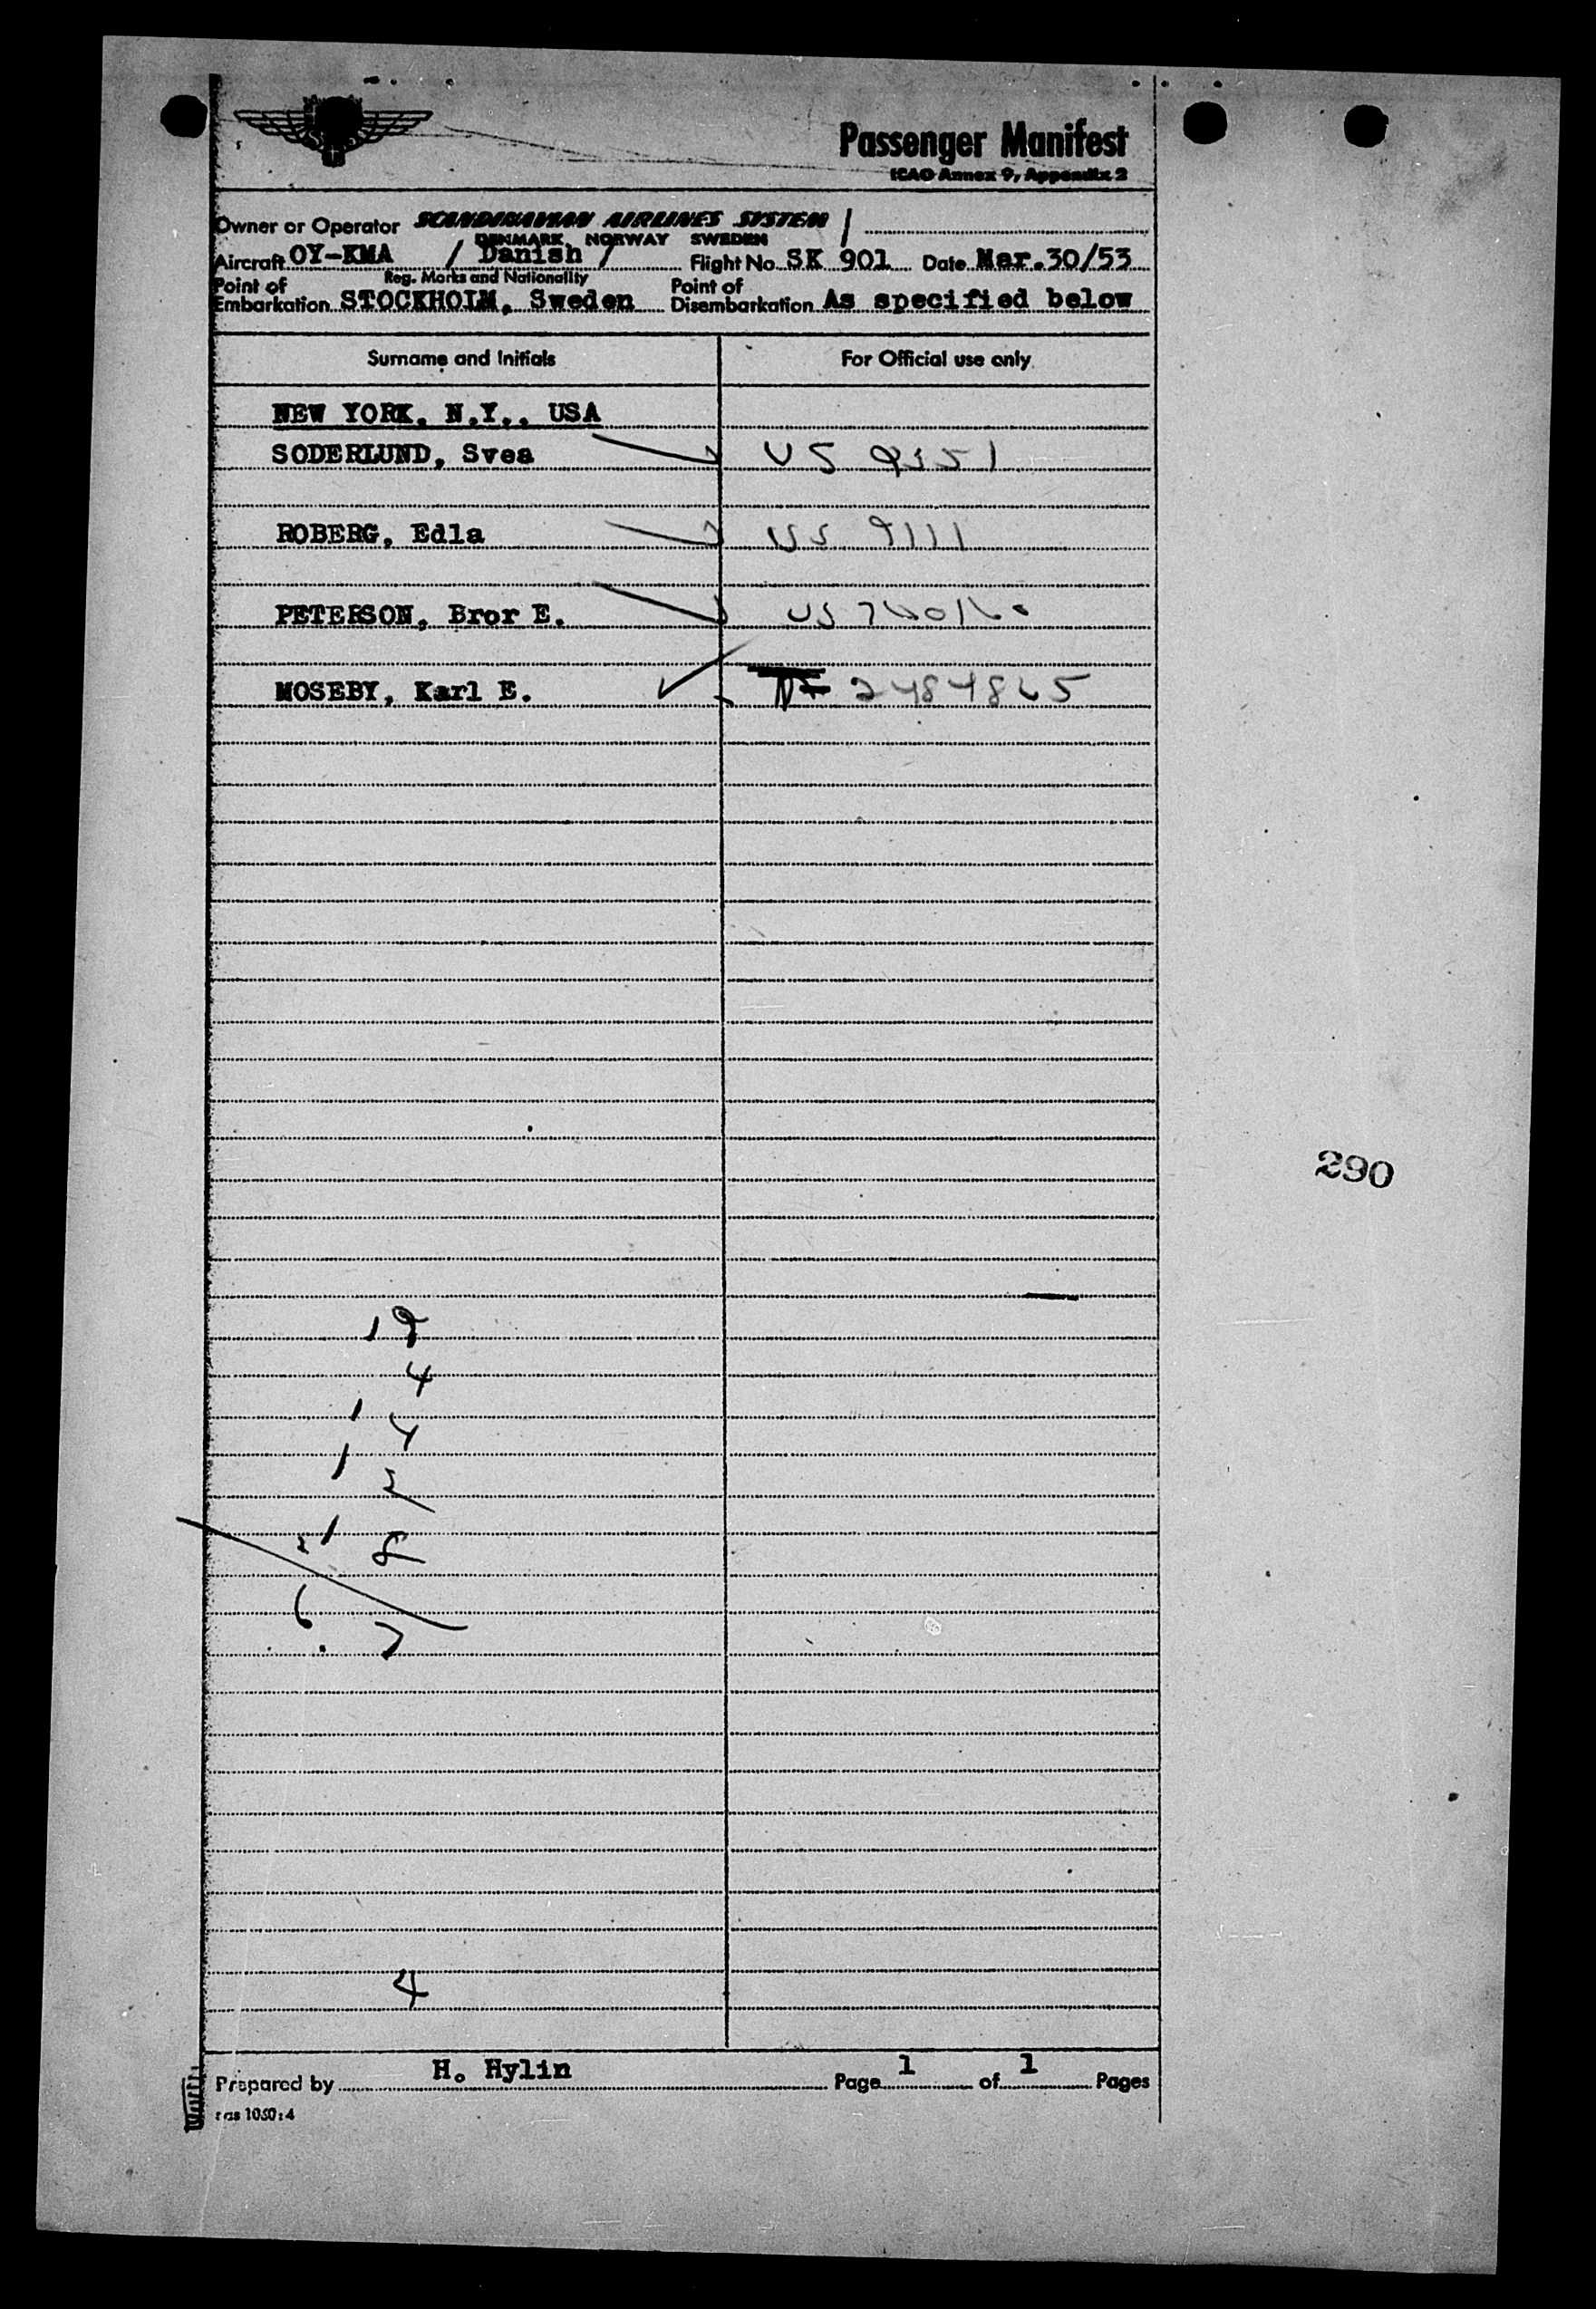 Passenger Manifest
ICAO Annex 9, Appendix 2
Owner or Operator SCANDINAVIAN AIRLINES SYSTEM /
DENMARK, NORWAY SWEDEN
Aircraft OY-KMA / Danish / Flight No. SK 901 Date Mar.30/53
Reg. Marks and Nationality
Point of Embarkation STOCKHOLM, Sweden Point of Disembarkation As specified below
Surname and Initials For Official use only
NEW YORK, N.Y., USA
SODERLUND, Svea US 9351
ROBERG, Edla US 9111
PETERSON, Bror E. US
MOSEBY, Karl E. 2484865
290
19
4
1 4
1 2
8
6 7
4
Prepared by H. Hylin Page 1 of 1 Pages
sas 1050:4